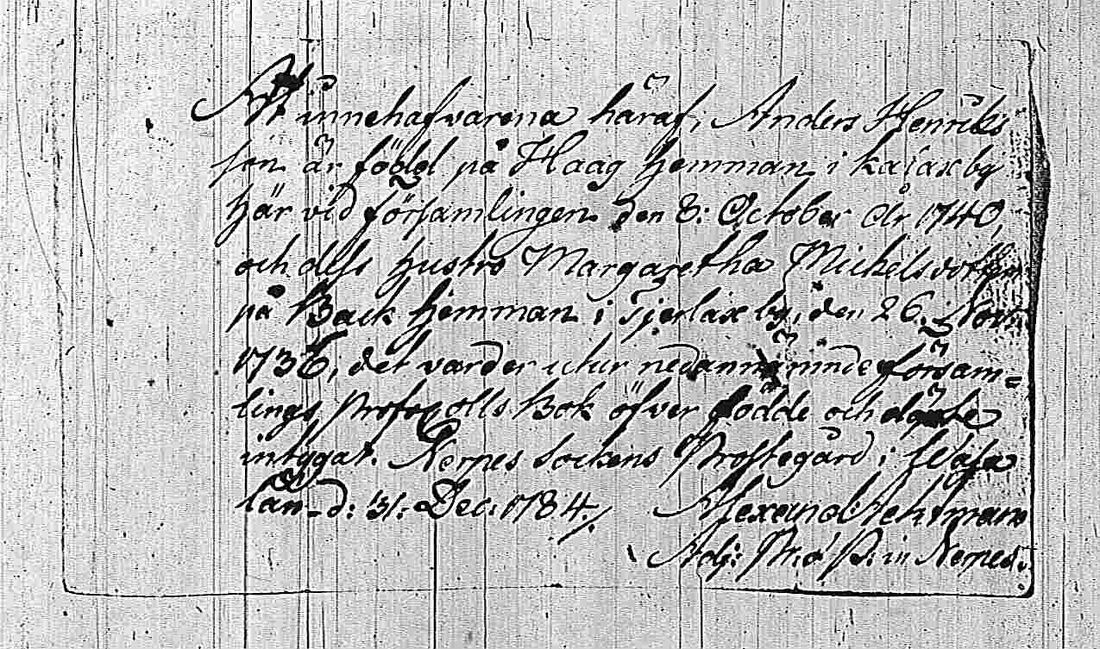 At innehafvarena häraf, Anders Henriks
son är född på Haag hemman i Kajax by
här vid församlingen den 8: October år 1740,
och dess hustro Margaretha Mickelsdotter
på Back hemman i Tjerlax by, den 26. Nov:
1736, det varder utur nedannämnde försam=
lings Protocolls Bok öfver födde och döpte
intygat. Nerpes Sockens Prostegård i Wasa
län d: 31. Dec: 1784./. Alexand
Adj: in Nerpes.